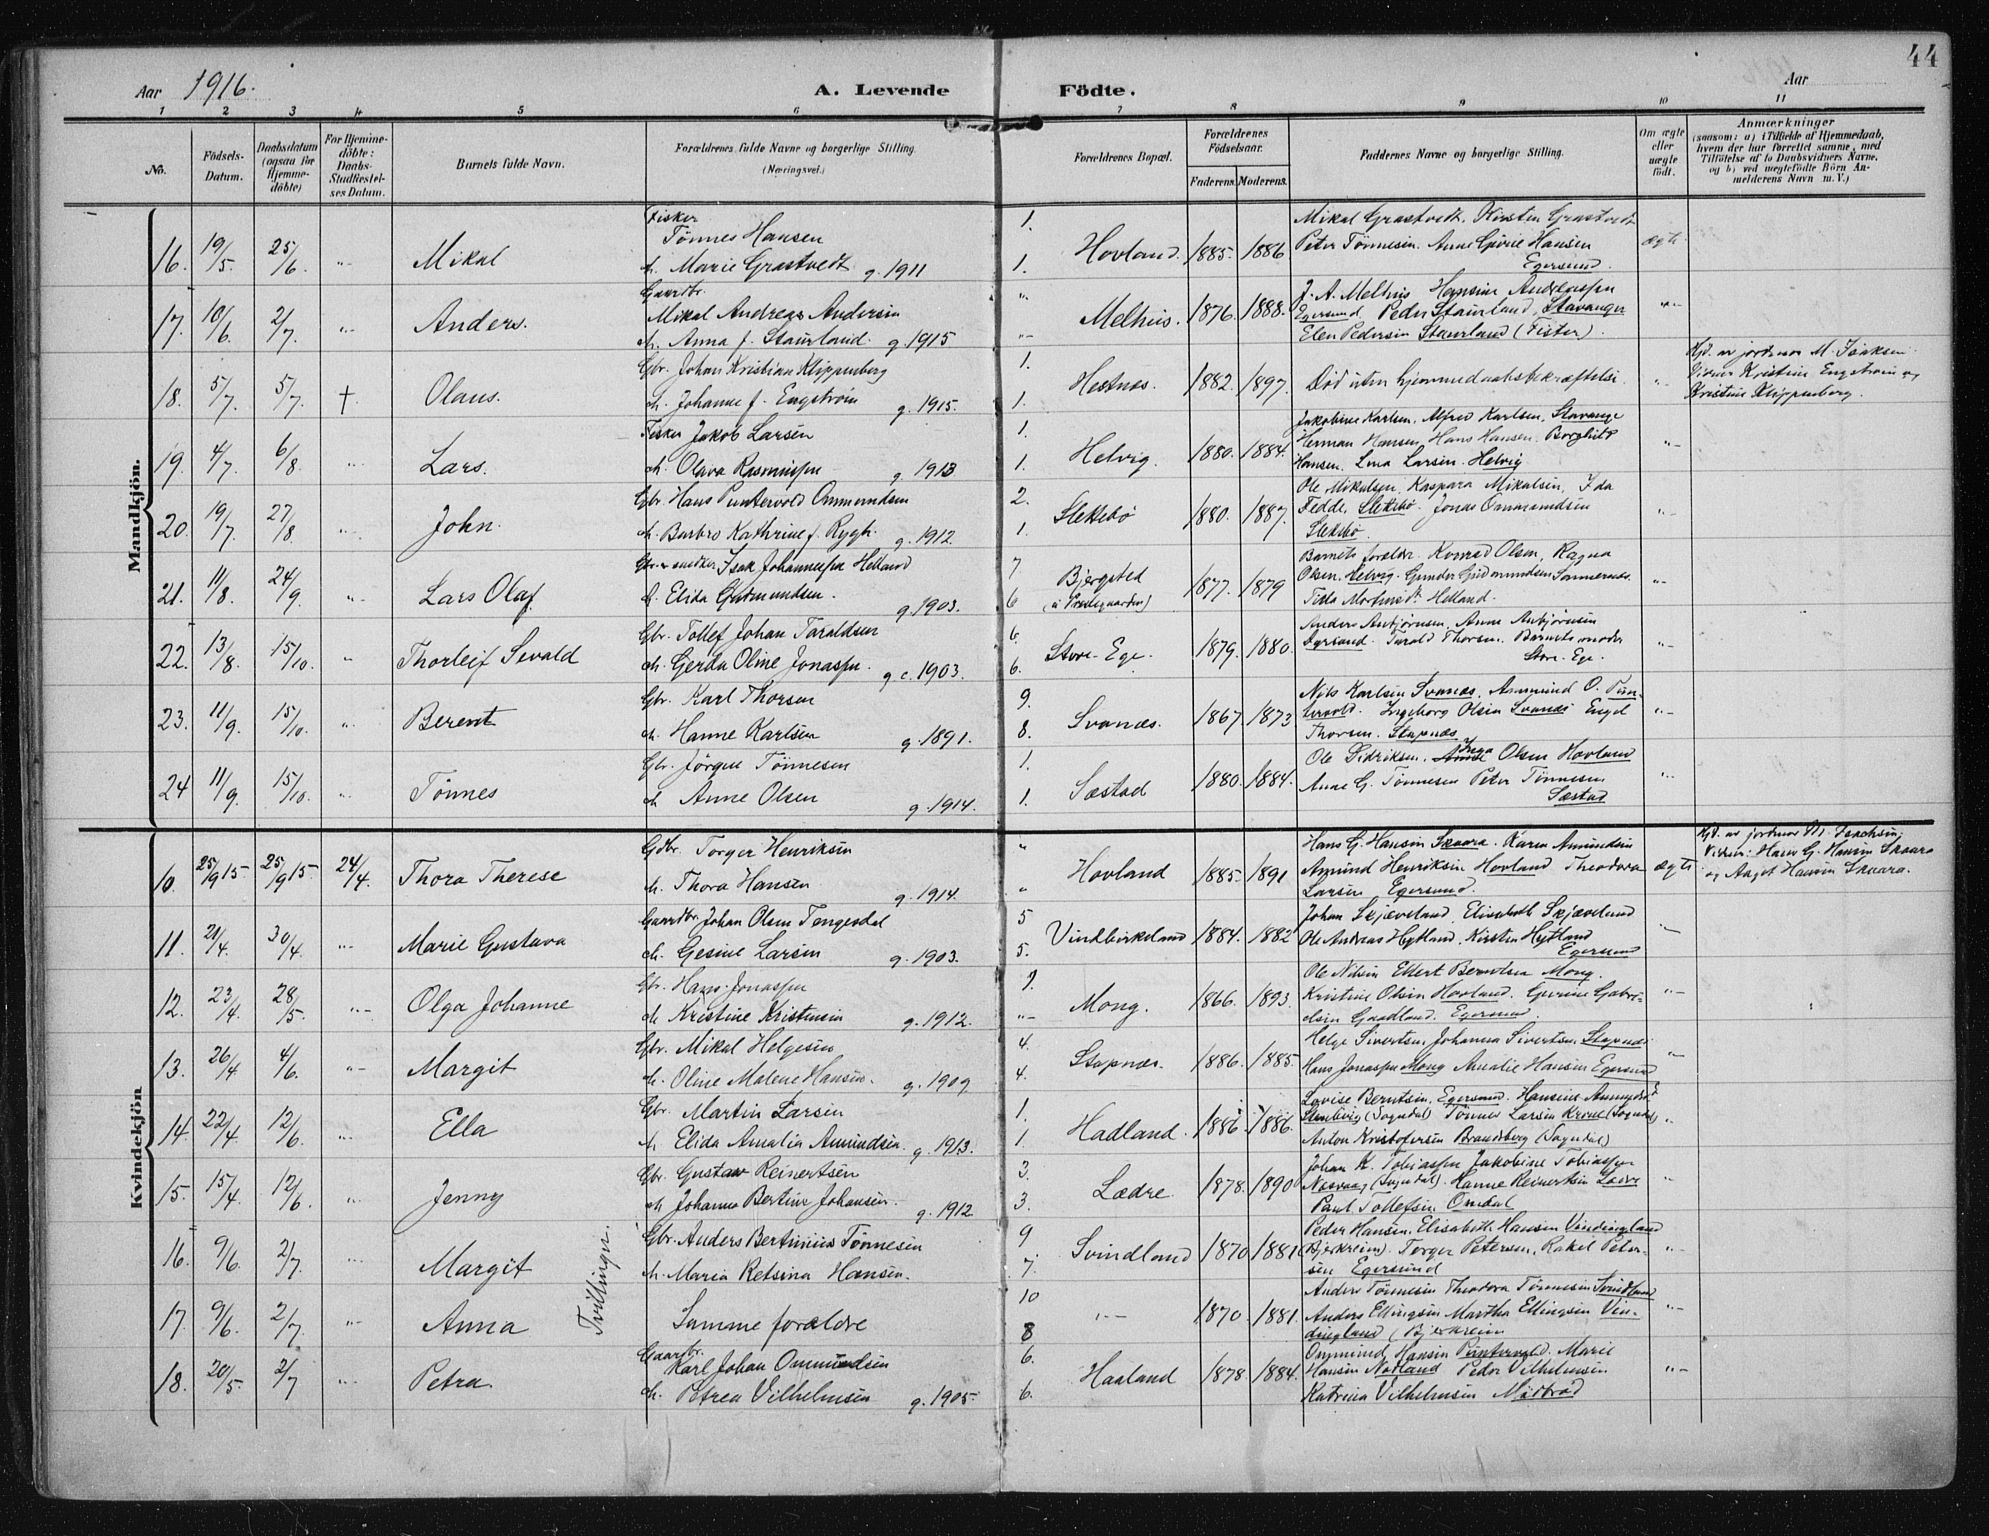 44
Aar 1916.
A. Levende Födte.
Aar
1 2 3 4 5 6 7 8 9 10 11
No.
Födsels-Datum.
Daabsdatum (ogsaa for Hjemme-döbte)
For Hjemme-döbte: Daabs-Stadfæstel-ses Datum.
Barnets fulde Navn.
Forældrenes fulde Navne og borgerlige Stilling.
(Næringsvei.)
Forældrenes Bopæl.
Forældrenes Födselsaar.
Faderens. Moderens.
Faddernes Navne og borgerlige Stilling.
Om ægte eller uægte födt.
Anmærkninger
(saasom: a) i Tilfælde af Hjemmedaab, hvem der har forrettet samme, med Tilföielse af to Daabsvidners Navne, og b) ved uægtefödte Börn Anmelderens Navn m. V.)
Mandkjön.
16. 19/5. 25/6 -"- Mikal
Fisker
Tönnes Hansen
h. Marie Grastvedt g. 1911
1.
1.
Hovland. 1885. 1886
Mikal Grastvedt. Kirsten Grastvedt
Peter Tönnesen. Anne Gurine Hansen
Egersund.
ægte.
17. 10/6. 2/7. -"- Anders.
Gaardbr.
Mikal Andreas Andersen
h. Anna f. Staurland. g. 1915
"
-"-
Melhus. 1876. 1888.
J. A. Melhus Hansine Andreassen
Egersund Peder Staurland, Stavanger
Elen Pedersen Staurland (Fister).
-"-
18. 5/7. 5/7. † Olaus.
Gbr. Johan Kristian Klippenberg
h. Johanne f. Engström g. 1915.
1.
1.
Hestnes. 1882. 1897.
Död uten hjemmedaabsbekræftelse.
-"-
Hjd. av jordmor M. Isaksen
Vidner Kristine Engström og
Kristine Klippenberg.
19. 4/7. 6/8 -"- Lars.
Fisker Jakob Larsen
h. Olava Rasmussen g. 1913
1.
1.
Helvig. 1880. 1884.
Jakobine Karlsen, Alfred Karlsen, Stavanger
Herman Hansen, Hans Hansen. Borghild
Hansen. Lina Larsen. Helvig
-"-
20. 19/7. 27/8. -"- John.
Gbr. Hans Puntervold Ommundsen
h. Barbro Kathrine f. Rygh. g. 1912.
2.
1.
Slettebö 1880. 1887.
Ole Mikalsen, Kaspara Mikalsen, Ida
Fedde, Slettebö. Jonas Ommundsen
Slettebö.
-"-
21. 11/8. 24/9. -"- Lars Olaf
Gbr. + snedker Isak Johannessen Helland
h. Elida Gutmundsen. g. 1903.
7
6
Bjergsted
(u Prestegaarden) 1877. 1879
Barnets forældre. Konrad Olsen, Ragna
Olsen. Helvig. Gunder Gudmundsen
Helland.
-"-
22. 13/8. 15/10. " Thorleif Sevald
Gbr. Tollef Johan Taraldsen
h. Gerda Oline Jonassen. g. c. 1903.
6.
6.
Store-Ege. 1879. 1880.
Anders Anbjörnsen, Anne Anbjörnsen
Egersund. Tarald Thorsen. Barnets moder
Store-Ege.
-"-
23. 11/9. 15/10. " Berent
Gbr. Karl Thorsen
h. Hanne Karlsen g. 1891.
9.
8.
Svanæs. 1867. 1873
Nils Karlsen Svanæs. Ammund O. Pun-
tervold. Ingeborg Olsen Svanæs Engel
Thorsen. Stapnæs
-"-
24 11/9. 15/10. -"- Tönnes
Gbr. Jörgen Tönnesen
h. Anne Olsen g. 1914.
1.
1.
Sæstad 1880. 1884.
Ole Didriksen. Inga Olsen Hovland
Anne G. Tönnesen Peter Tönnesen
Sæstad
-"-
Kvindekjön
10. 25/9 15 25/9 15. 24/4. Thora Therese
Gdbr. Torger Henriksen
h. Thora Hansen g. 1914.
"
"
Hovland 1885. 1891
Hans G. Hansen Skaara. Karen Amundsen
Amund Henriksen Hovland Theodora
Larsen Egersund.
ægte
Hjd. av jordmor M. Isachsen,
Vidner: Hans G. Hansen Skaara
og Aaget Hansen Skaara.
11. 21/4. 30/4. -"- Marie Gustava
Gaardbr. Johan Olsen Tengesdal
h. Gesine Larsen g. 1903.
5
5.
Vindbirkeland 1884. 1882
Johan Skjæveland, Elisabeth Skjæveland
Ole Andreas Hytland, Kirsten Hytland
Egersund
-"-
12. 23/4 28/5. -"- Olga Johanne
Gbr. Hans Jonassen
h. Kristine Kristensen g. 1912.
9.
-"-
Mong. 1866. 1893.
Ole Nilsen Ellert Berentsen Mong.
Kristine Olsen Hovland. Gurine Gabri-
elsen Gaadland. Egersund.
-"-
13. 26/4 4/6. -"- Margit
Gbr. Mikal Helgesen
h. Oline Malene Hansen. g. 1909
4.
4.
Stapnæs. 1886. 1885.
Helge Sivertsen, Johanna Sivertsen Stapnæs
Hans Jonassen Mong Amalie Hansen Egersund
-"-
14. 22/4. 12/6. -"- Ella
Gbr. Martin Larsen
h. Elida Amalia Amundsen. g. 1913.
1.
1.
Hadland. 1886 1886.
Lovise Berntsen, Egersund. Hansine Amundsen
Stenberg (Sogndal) Tönnes Larsen Krone (Sogndal)
Anton Kristofersen Brandsberg (Sogndal)
"
15. 15/4 12/6. -"- Jenny
Gbr. Gustav Reinertsen
h. Johanna Bertine Johansen. g. 1912.
3.
3.
Lædre. 1878. 1890
Johan K. Tobiassen Jakobine Tobiassen
Nesvaag (Sogndal). Hanne Reinertsen Lædre
Paul Tollefsen Omdal
"
16. 9/6. 2/7. -"- Margit
Gbr. Anders Bertinius Tönnesen
h. Maria Retsina Hansen.
Tvillinger.
9
7.
Svindland 1870 1881
Peder Hansen. Elisabeth Hansen Vindingland
(Bjerkreim). Torger Petersen, Rakel Peter-
sen Egersund
-"-
17. 9/6. 2/7. -"- Anna
Samme forældre
10
8
-"- 1870. 1881.
Anders Tönnesen Theodora Tönnesen Svindland
Anders Ellingsen Martha Ellingsen Vin-
dingland (Bjerkreim
-"-
18. 20/5. 2/7 -"- Petra.
Gaardbr.
Karl Johan Ommundsen
h. Petrea Vilhelmsen g. 1905.
6.
6.
Haaland 1878. 1884.
Ommund Hansen Puntervold. Marie
Hansen Nodland Peder Vilhelmsen
Katrina Vilhelmsen Midbrød
-"-